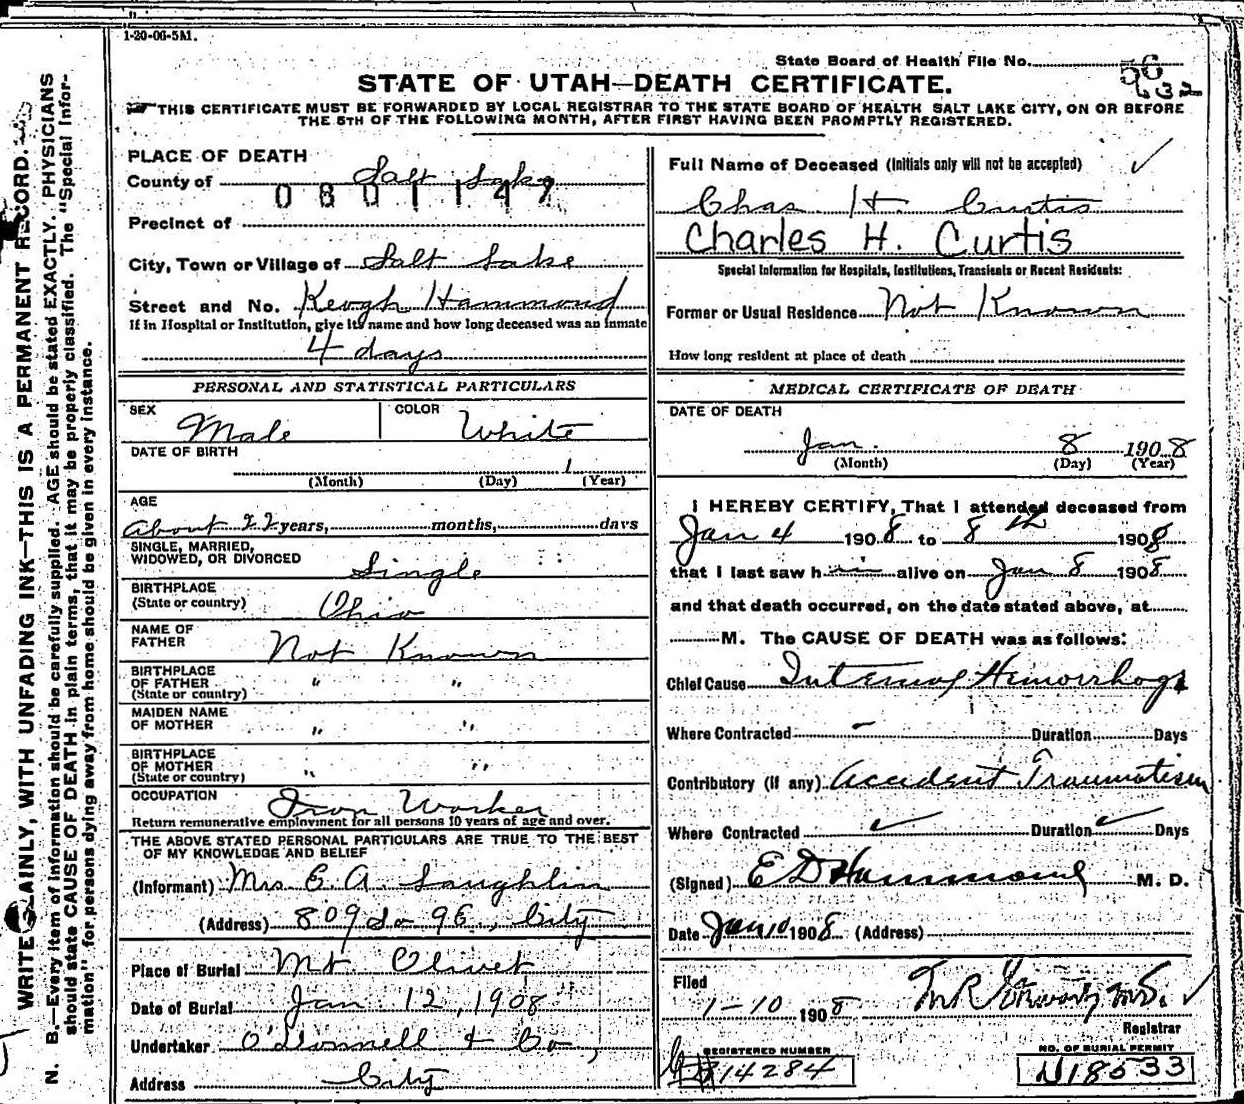 1-20-06-5M.
State Board of Health File No.
STATE OF UTAH—DEATH CERTIFICATE.
THIS CERTIFICATE MUST BE FORWARDED BY LOCAL REGISTRAR TO THE STATE BOARD OF HEALTH SALT LAKE CITY, ON OR BEFORE
THE 5TH OF THE FOLLOWING MONTH, AFTER FIRST HAVING BEEN PROMPTLY REGISTERED.
WRITE PLAINLY, WITH UNFADING INK—THIS IS A PERMANENT RECORD.
N. B.—Every item of information should be carefully supplied. AGE should be stated EXACTLY. PHYSICIANS
should state CAUSE OF DEATH in plain terms, that it may be properly classified. The "Special Infor-
mation" for persons dying away from home should be given in every instance.
PLACE OF DEATH
County of Salt Lake
0801147
Precinct of
City, Town or Village of Salt Lake
Street and No. Keogh Hammond
If in Hospital or Institution, give its name and how long deceased was an inmate
4 days
PERSONAL AND STATISTICAL PARTICULARS
SEX Male COLOR White
DATE OF BIRTH
1
(Month) (Day) (Year)
AGE
About 22 years, months, days
SINGLE, MARRIED,
WIDOWED, OR DIVORCED Single
BIRTHPLACE
(State or country) Ohio
NAME OF
FATHER Not Known
BIRTHPLACE
OF FATHER " "
(State or country)
MAIDEN NAME
OF MOTHER " "
BIRTHPLACE
OF MOTHER " "
(State or country)
OCCUPATION Iron Worker
Return remunerative employment for all persons 10 years of age and over.
THE ABOVE STATED PERSONAL PARTICULARS ARE TRUE TO THE BEST
OF MY KNOWLEDGE AND BELIEF
(Informant) Mrs. C. A. Laughlin
(Address) 809 So 9 E., City
Place of Burial Mt Olivet
Date of Burial Jan 12, 1908
Undertaker O'Donnell & Co,
Address City
Full Name of Deceased (Initials only will not be accepted)
Chas. H. Curtis
Charles H. Curtis
Special Information for Hospitals, Institutions, Transients or Recent Residents:
Former or Usual Residence Not Known
How long resident at place of death
MEDICAL CERTIFICATE OF DEATH
DATE OF DEATH
Jan. 8 1908
(Month) (Day) (Year)
I HEREBY CERTIFY, That I attended deceased from
Jan 4 1908 to 8th 1908
that I last saw him alive on Jan 8 1908
and that death occurred, on the date stated above, at
M. The CAUSE OF DEATH was as follows:
Chief Cause Internal Hemorrhage
Where Contracted - Duration Days
Contributory (if any) Accident Traumatism
Where Contracted ✓ Duration ✓ Days
(Signed) E D Hammond M. D.
Date Jan 10 1908 (Address)
Filed
1-10 1908
Registrar
REGISTERED NUMBER
14284
NO. OF BURIAL PERMIT
N18533